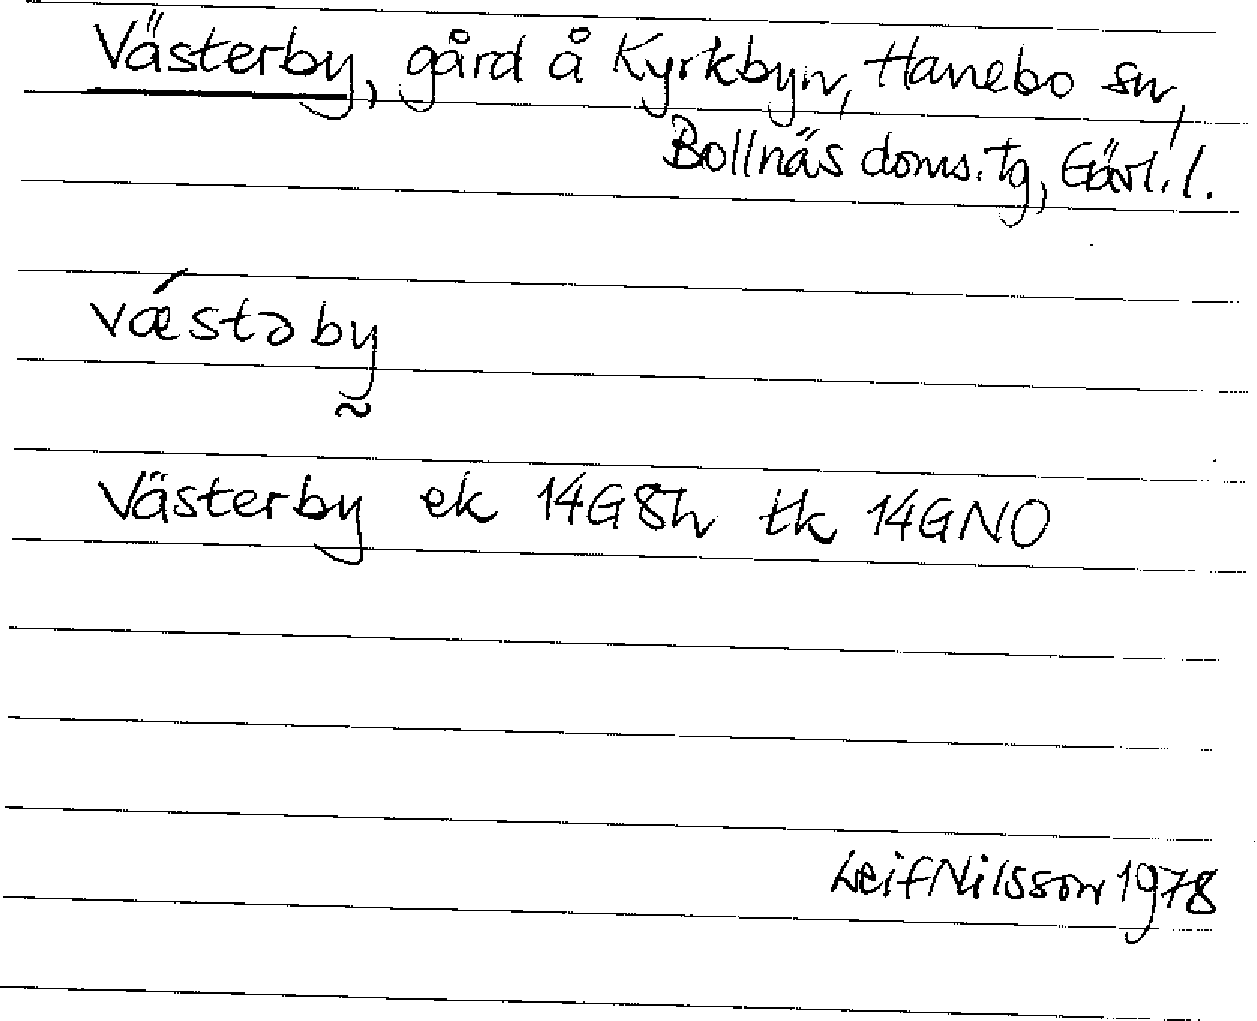 Västerby, gård å Kyrkbyn, Hanebo sn,
Bollnäs doms. tg, Gävl. l.
vǽstəby
Västerby ek 14G8h tk 14GNO
Leif Nilsson 1978